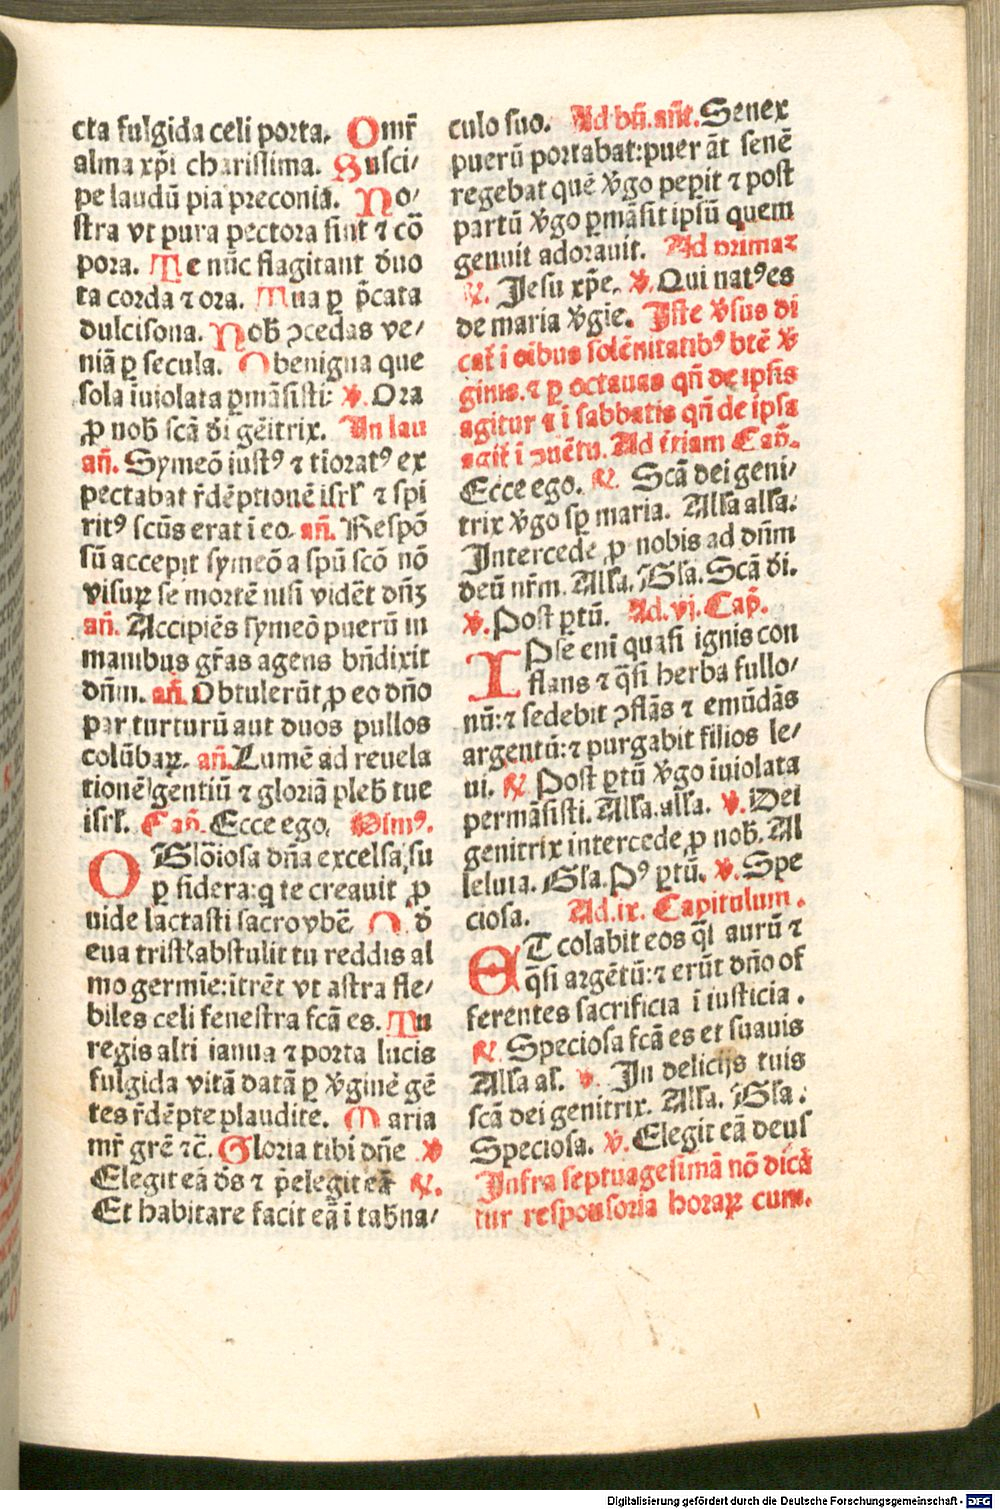 cta fulgida celi porta. O mr̄
alma xp̄i charissima. Susci/
pe laudū pia preconiā. No/
stra vt pura pectora sint ⁊ cō
pora. Te nūc flagitant deuo
ta corda ⁊ ora. Tua ꝑ p̄cata
dulcisona. Nob̄ ↄcedas ve/
niā ꝑ secula. O benigna que
sola īuiolata ꝑmāsisti: ℣. Ora
ꝓ nob̄ scā dei gēitrix. An lau
an̄. Symeō iustꝰ ⁊ tioratꝰ ex
pectabat r̄dēptionē isrl̄ ⁊ spi
ritꝰ scūs erat i eo. an̄. Respō
sū accepit symeō a spū scō nō
visuꝝ se mortē nisi vidēt dn̄ꝫ
an̄. Accipiēs symeō puerū in
manibus gr̄as agens bn̄dixit
dn̄m. an̄. Obtulerūt ꝓ eo dn̄o
par turturū aut duos pullos
colūbaꝝ. an̄. Lumē ad reuela
tionē gentiū ⁊ gloriā pleb̄ tue
isrl̄. Cap̄. Ecce ego. Himꝰ.
O Gl'oiosa dn̄a excelsa su
ꝑ sidera: q̄ te creauit ꝓ
uide lactasti sacro vbē. Q d̄
eua trist̄ abstulit tu reddis al
mo germīe: itrēt vt astra fle/
biles celi fenestra fcā es. Tu
regis alti ianua ⁊ porta lucis
fulgida vitā datā ꝑ v̄ginē gē
tes r̄dēpte plaudite. Maria
mr̄ grē ⁊c̄. Gloria tibi dn̄e ℣
Elegit eā ds̄ ⁊ p̄elegit eā ℟.
Et habitare facit eā i tab̄na/
culo suo. Ad bn̄. an̄t. Senex
puerū portabat: puer āt senē
regebat quē v̄go peꝑit ⁊ post
partū v̄go ꝑmāsit ipsū quem
genuit adorauit. Ad primaꝫ
℟. Jesu xp̄e. ℣. Qui natꝰ es
de maria v̄gīe. Iste v̄sus di
cat̄ i oībus solēnitatibꝰ btē v̄
ginis. ⁊ ꝑ octauas qn̄ de ipsis
agitur ⁊ i sabbatis qn̄ de ipsa
agit̄ i ↄuētu. Ad tr̄iam Cap̄.
Ecce ego. ℟. Scā dei geni/
trix v̄go sꝑ maria. All'a all'a.
Intercede ꝓ nobis ad dn̄m
deū nr̄m. All'a. Gl'a. Scā di.
℣. Post ꝑtū. Ad. vj. Cap̄.
IPse eni quasi ignis con
flans ⁊ q̄si herba fullo/
nū: ⁊ sedebit ↄflās ⁊ emūdās
argentū: ⁊ purgabit filios le/
ui. ℟ Post ꝑtū v̄go īuiolata
permāsisti. All'a. all'a. ℣. Dei
genitrix intercede ꝓ nob̄. Al
leluia. Gl'a. Pꝰ ꝑtū. ℣. Spe
ciosa. Ad. ix. Capitulum.
ET colabit eos q̄si aurū ⁊
q̄si argētū: ⁊ erūt dn̄o of
ferentes sacrificia ī iusticia.
℟. Speciosa fcā es et suauis
All'a al'. ℣. In delicijs tuis
scā dei genitrix. All'a. Gl'a.
Speciosa. ℣. Elegit eā deus
Infra septuagesimā nō dicā
tur responsoria horaꝝ cum.
Digitalisierung gefördert durch die Deutsche Forschungsgemeinschaft - DFG